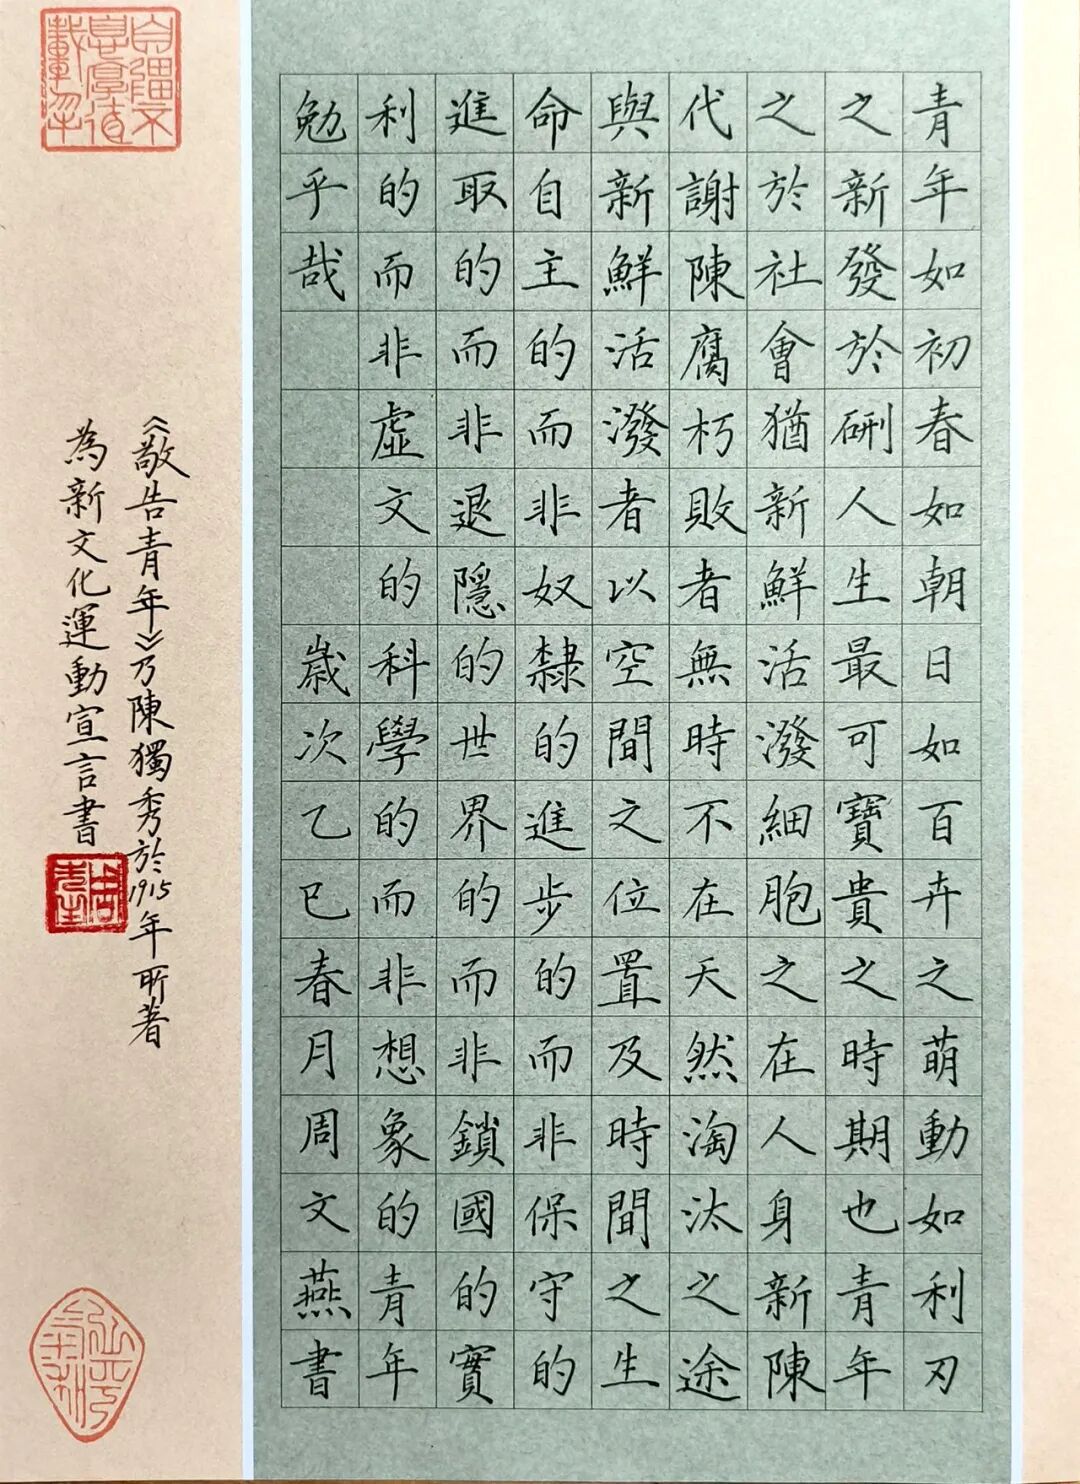 青年如初春如朝日如百卉之萌動如利刃
之新發於硎人生最可寶貴之時期也青年
之於社會猶新鮮活潑細胞之在人身新陳
代謝陳腐朽敗者無時不在天然淘汰之途
與新鮮活潑者以空間之位置及時間之生
命自主的而非奴隸的進步的而非保守的
進取的而非退隱的世界的而非鎖國的實
利的而非虛文的科學的而非想象的青年
勉乎哉
歲次乙巳春月周文燕書
《敬告青年》乃陳獨秀於1915年所著
為新文化運動宣言書
自彊不息厚德載物